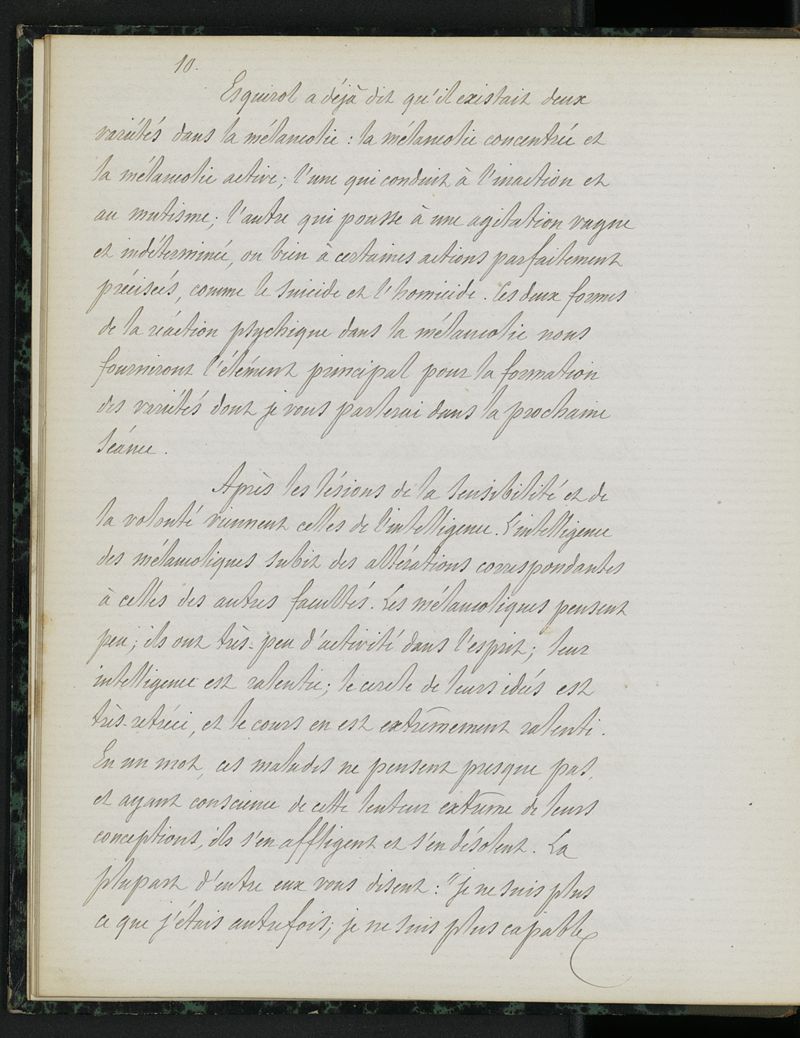 10.
Esquirol a déjà dit qu'il existait deux
variétés dans la mélancolie : la mélancolie concentrée et
la mélancolie active ; l'une qui conduit à l'inaction et
au mutisme ; l'autre qui pousse à une agitation vague
et indéterminée, ou bien à certaines actions parfaitement
précisées, comme le suicide et l'homicide. Ces deux formes
de la réaction psychique dans la mélancolie nous
fourniront l'élément principal pour la formation
des variétés dont je vous parlerai dans la prochaine
séance.
Après les lésions de la sensibilité et de
la volonté viennent celles de l'intelligence. L'intelligence
des mélancoliques subit des altérations correspondantes
à celles des autres facultés. Les mélancoliques pensent
peu ; ils ont très-peu d'activité dans l'esprit ; leur
intelligence est ralentie ; le cercle de leurs idées est
très-retréci, et le cours en est extrêmement ralenti.
En un mot, ces malades ne pensent presque pas,
et ayant conscience de cette lenteur extrême de leurs
conceptions, ils s'en affligent et s'en désolent. La
plupart d'entre eux vous disent : "Je ne suis plus
ce que j'étais autrefois ; je ne suis plus capable